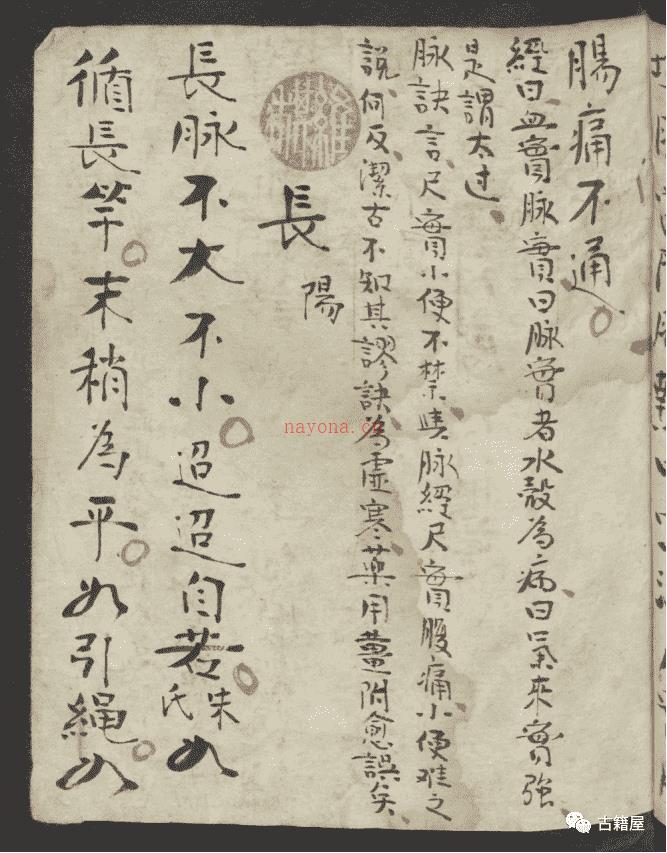 腸痛不通
經曰血實脉實曰脉實者水穀為病曰氣來實強
是謂太过
脉訣言尺實小便不禁與脉經尺實腹痛小便难之
說何反潔古不知其謬訣為虛寒藥用薑附愈誤矣
長 陽
長脉不大不小迢迢自若朱氏如
循長竿末稍為平如引繩如
nayona.cn
古籍屋